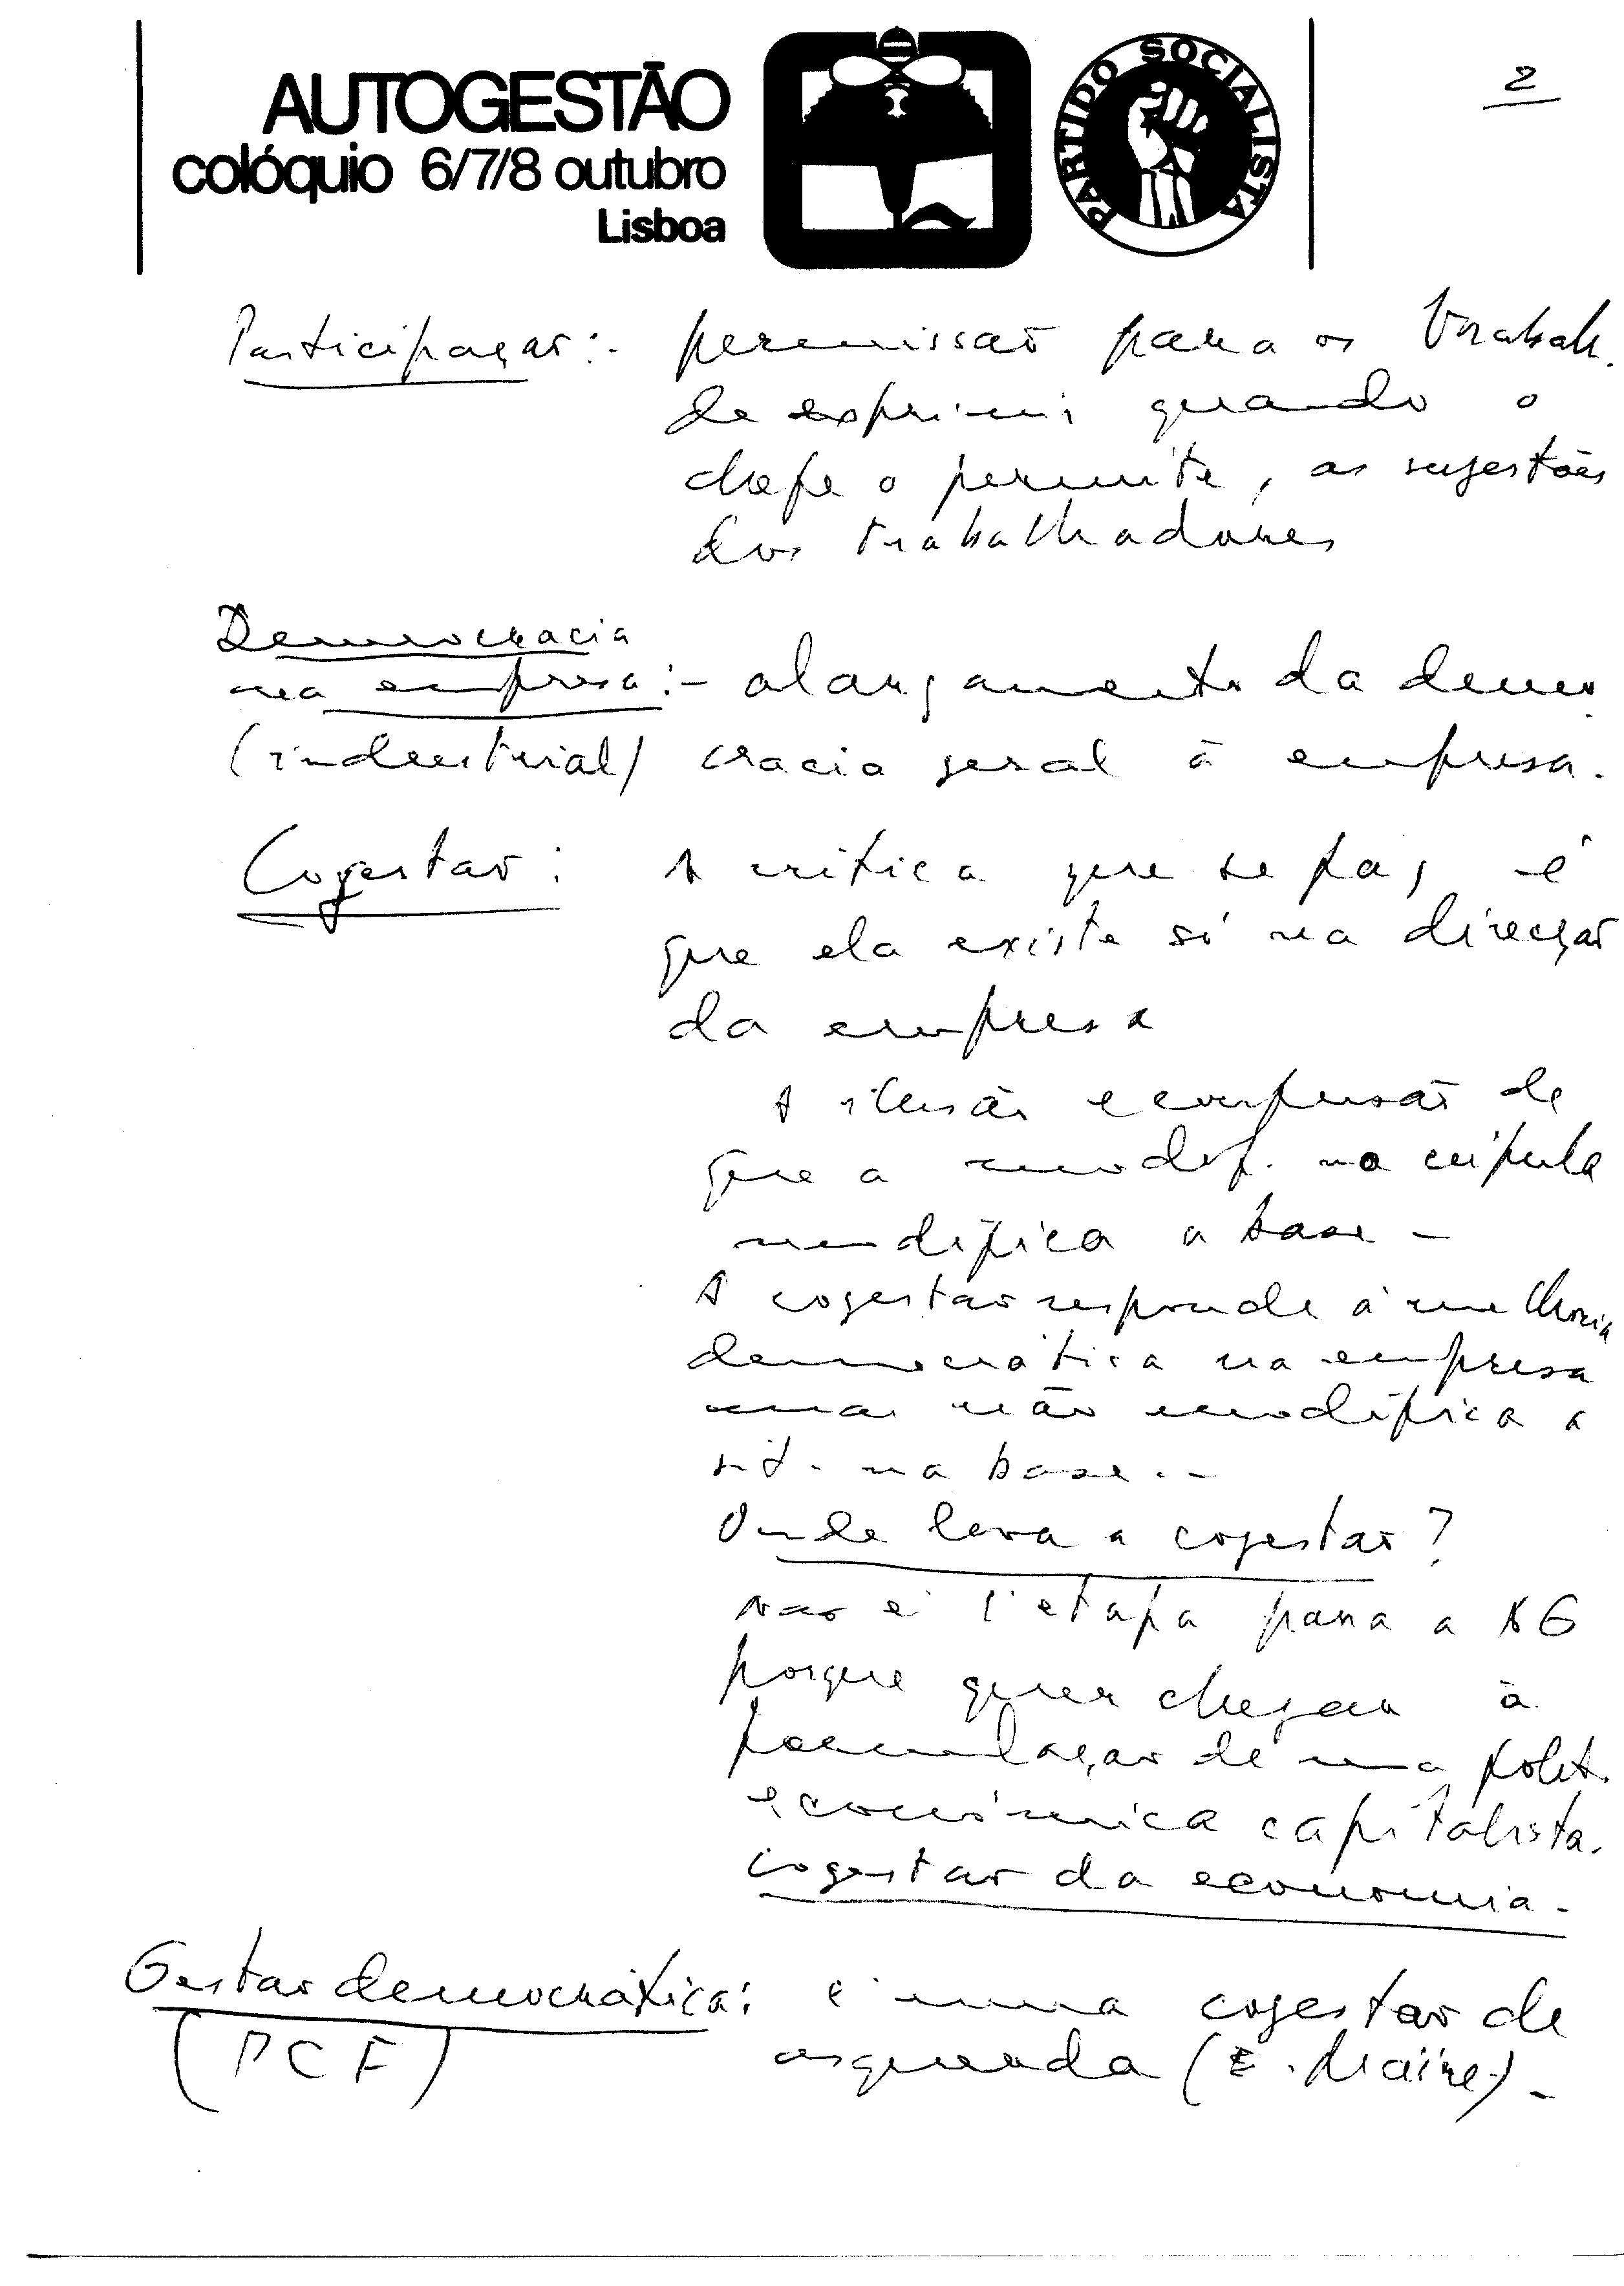 AUTOGESTÃO
colóquio 6/7/8 outubro
Lisboa
PARTIDO SOCIALISTA
2
Participação:- permissão para os trabalh.
de exprimir quando o
chefe o permite, as sugestões
dos trabalhadores
Democracia
na empresa:- alargamento da demo
(industrial) cracia geral à empresa.
Cogestão: A critica que se faz é
que ela existe só na direcção
da empresa
A ilusão e compensão de
que a modif. na cúpula
modifica a base -
A cogestão responde à melhoria
democrática na empresa
mas não modifica a
sit. na base.-
Onde leva a cogestão?
não é 1ª etapa para a AG
porque quer chegar à
formulação de uma polit.
económica capitalista.
cogestão da economia.
Gestão democrática: é uma cogestão de
(PCF) esquerda (E. Maire).-